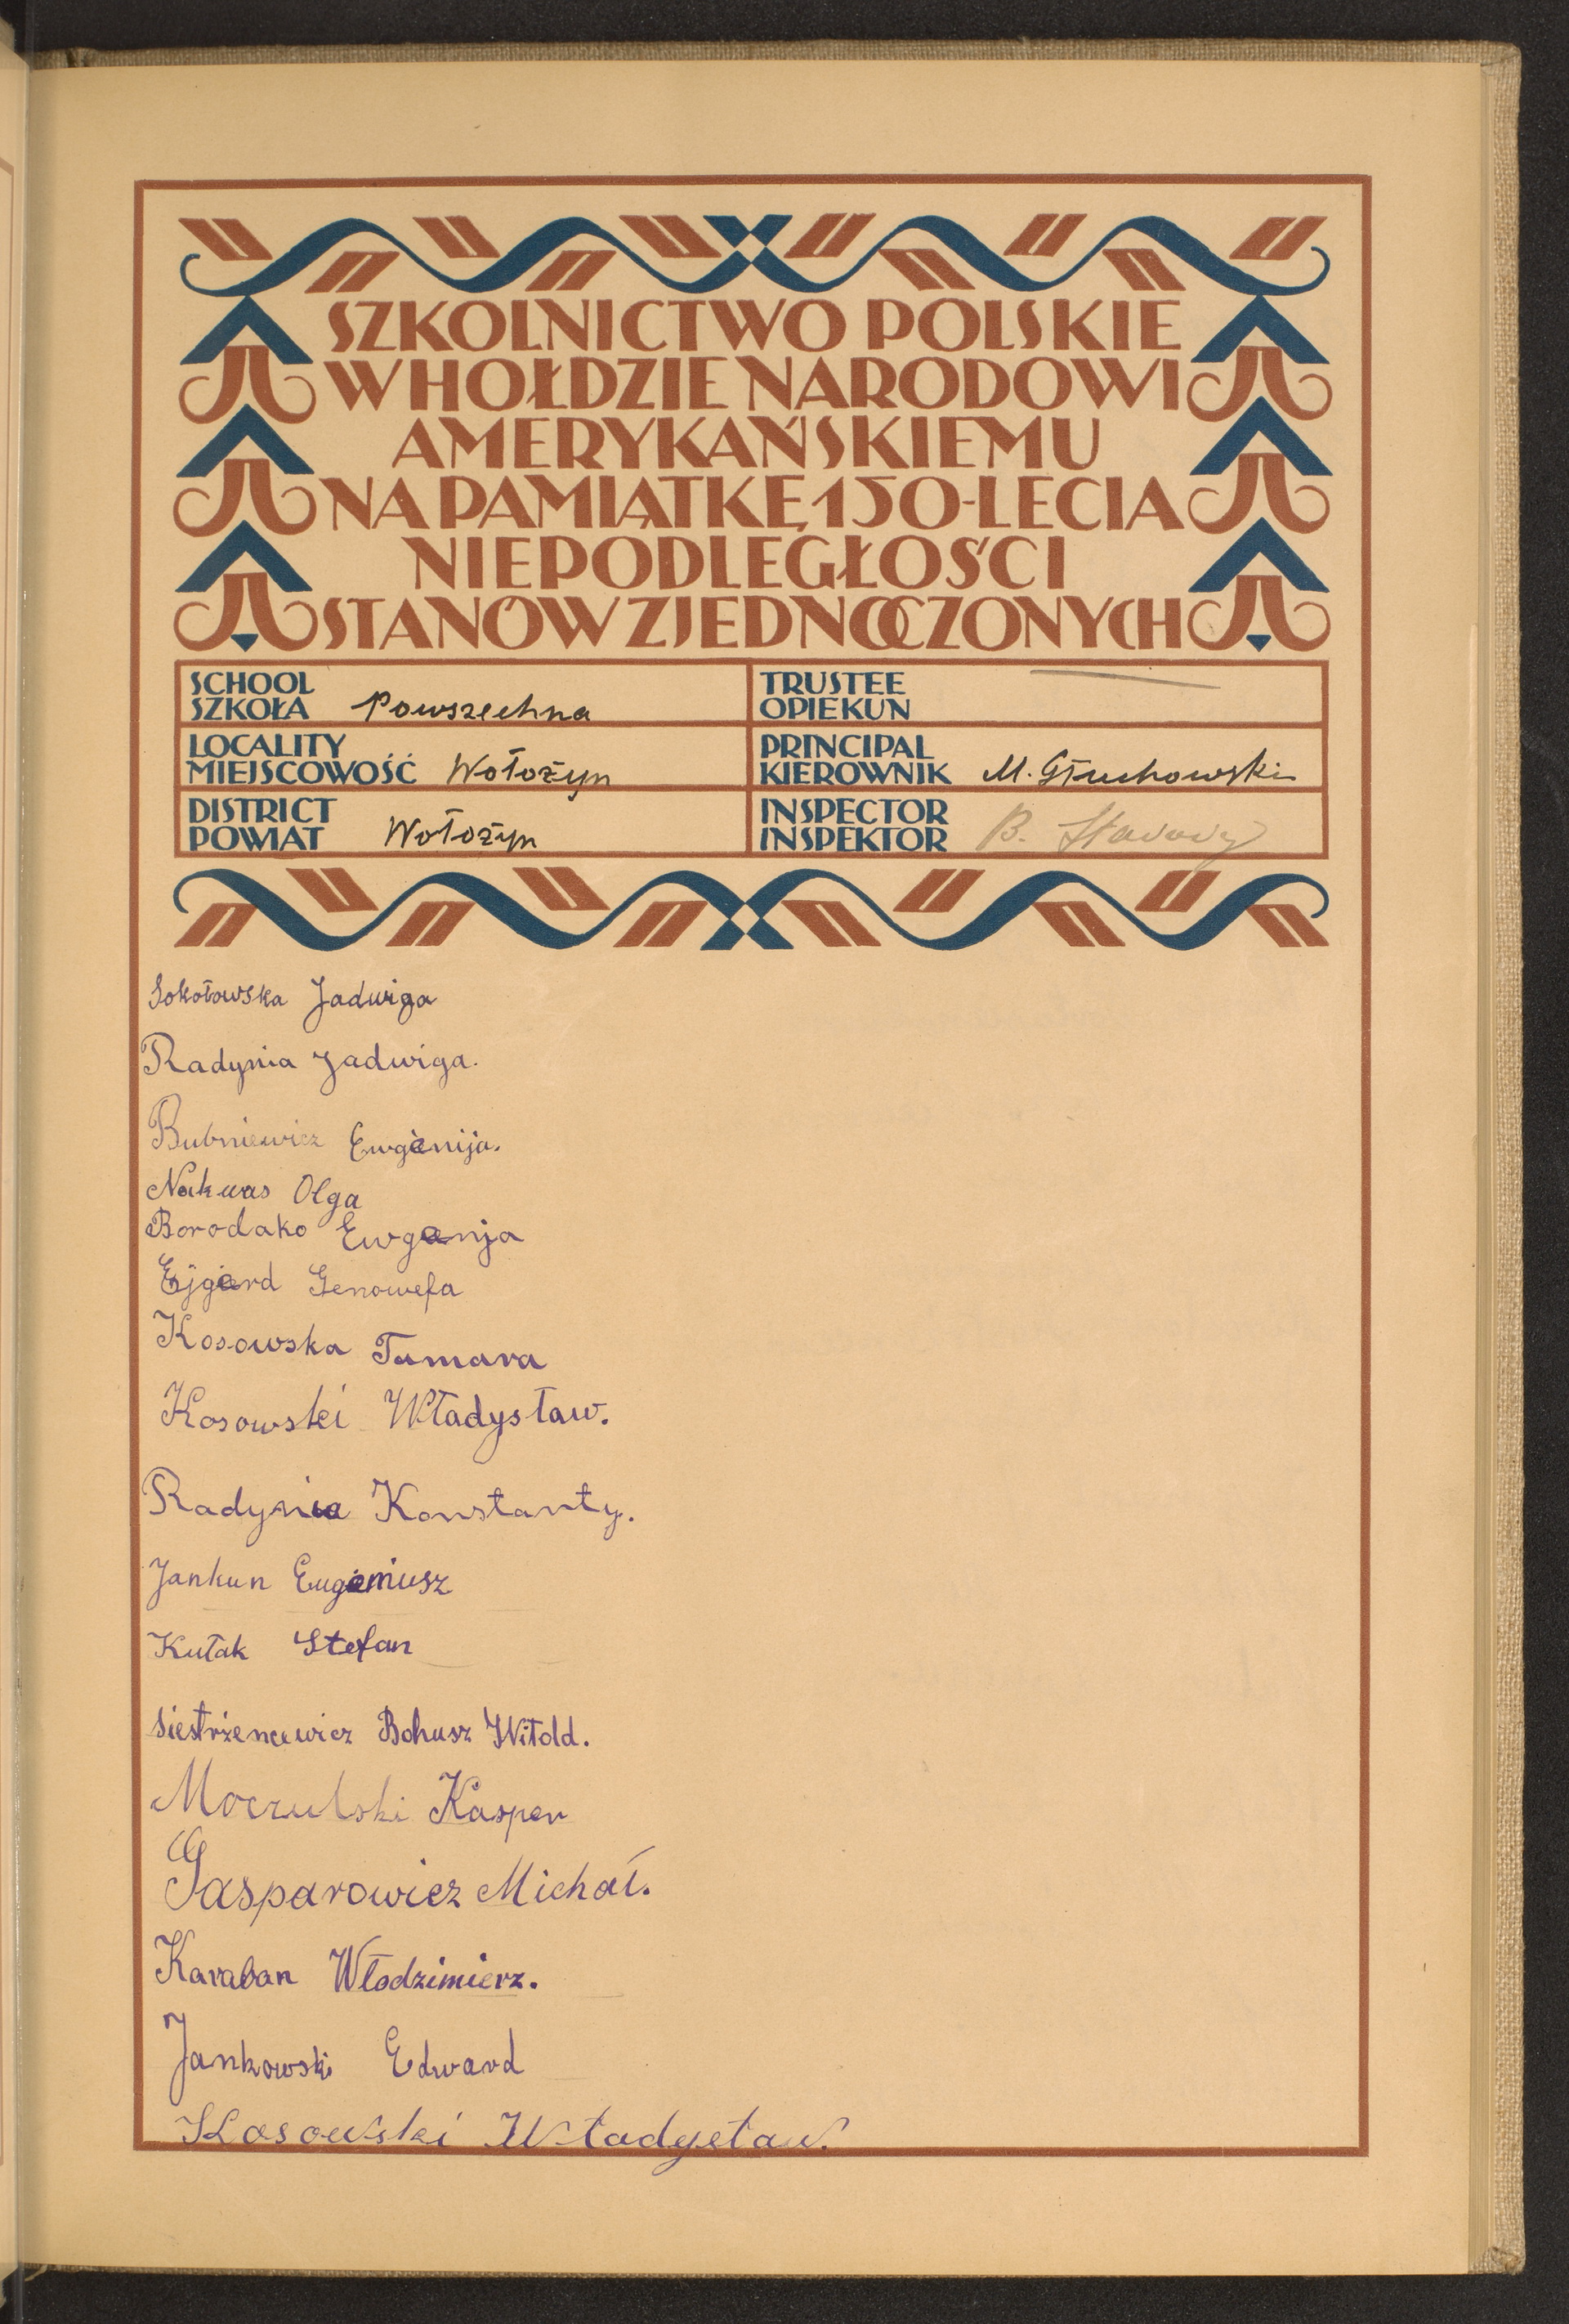 SZKOLNICTWO POLSKIE
W HOŁDZIE NARODOWI
AMERYKAŃSKIEMU
NA PAMIĄTKĘ 150-LECIA
NIEPODLEGŁOŚCI
STANÓW ZJEDNOCZONYCH
SCHOOL
SZKOŁA Powszechna
TRUSTEE
OPIEKUN
LOCALITY
MIEJSCOWOŚĆ Wołożyn
PRINCIPAL
KIEROWNIK M. Głuchowski
DISTRICT
POWIAT Wołożyn
INSPECTOR
INSPEKTOR B.
Sokołowska Jadwiga
Radynia Jadwiga.
Bubniewicz Ewgienija.
Nakwas Olga
Borodako Ewgenja
Ejgierd Genowefa
Kosowska Tamara
Kosowski Władysław.
Radynia Konstanty.
Jankun Eugeniusz
Kułak Stefan
Siestrzencewicz Bohusz Witold.
Moczulski Kasper
Gasparowicz Michał.
Karaban Włodzimierz.
Jankowski Edward
Kosowski Władysław.